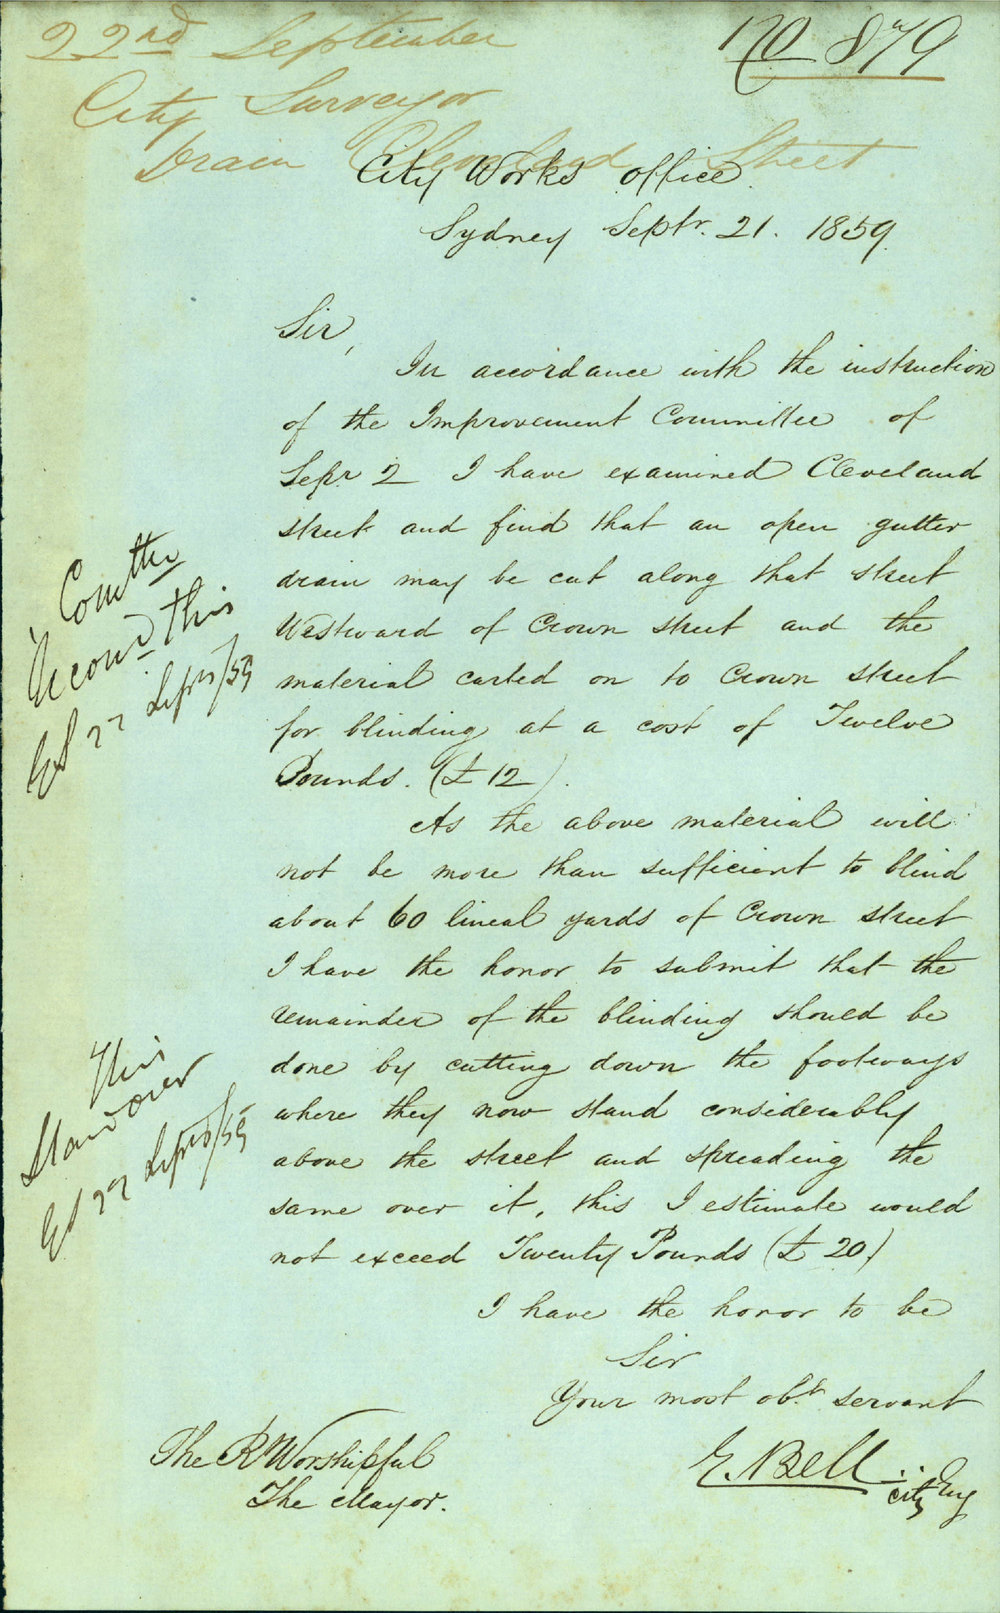 22nd September
City Surveyor
Drain Cleveland Street
No 879
City Works Office
Sydney Septr. 21. 1859
Sir,
In accordance with the instruction
of the Improvement Committee of
Sepr 2 I have examined Cleveland
street and find that an open gutter
drain may be cut along that street
Westward of Crown street and the
material carted on to Crown street
for blinding at a cost of Twelve
Pounds. (£12).
As the above material will
not be more than sufficient to blind
about 60 lineal yards of Crown street
I have the honor to submit that the
remainder of the blinding should be
done by cutting down the footways
where they now stand considerably
above the street and spreading the
same over it, this I estimate would
not exceed Twenty Pounds (£20)
I have the honor to be
Sir
Your most obt. servant
E. Bell
City Eng
The R Worshipful
The Mayor.
Comttee
Recomd this
27 Septr/59
This
Stand over
27 Septr/59